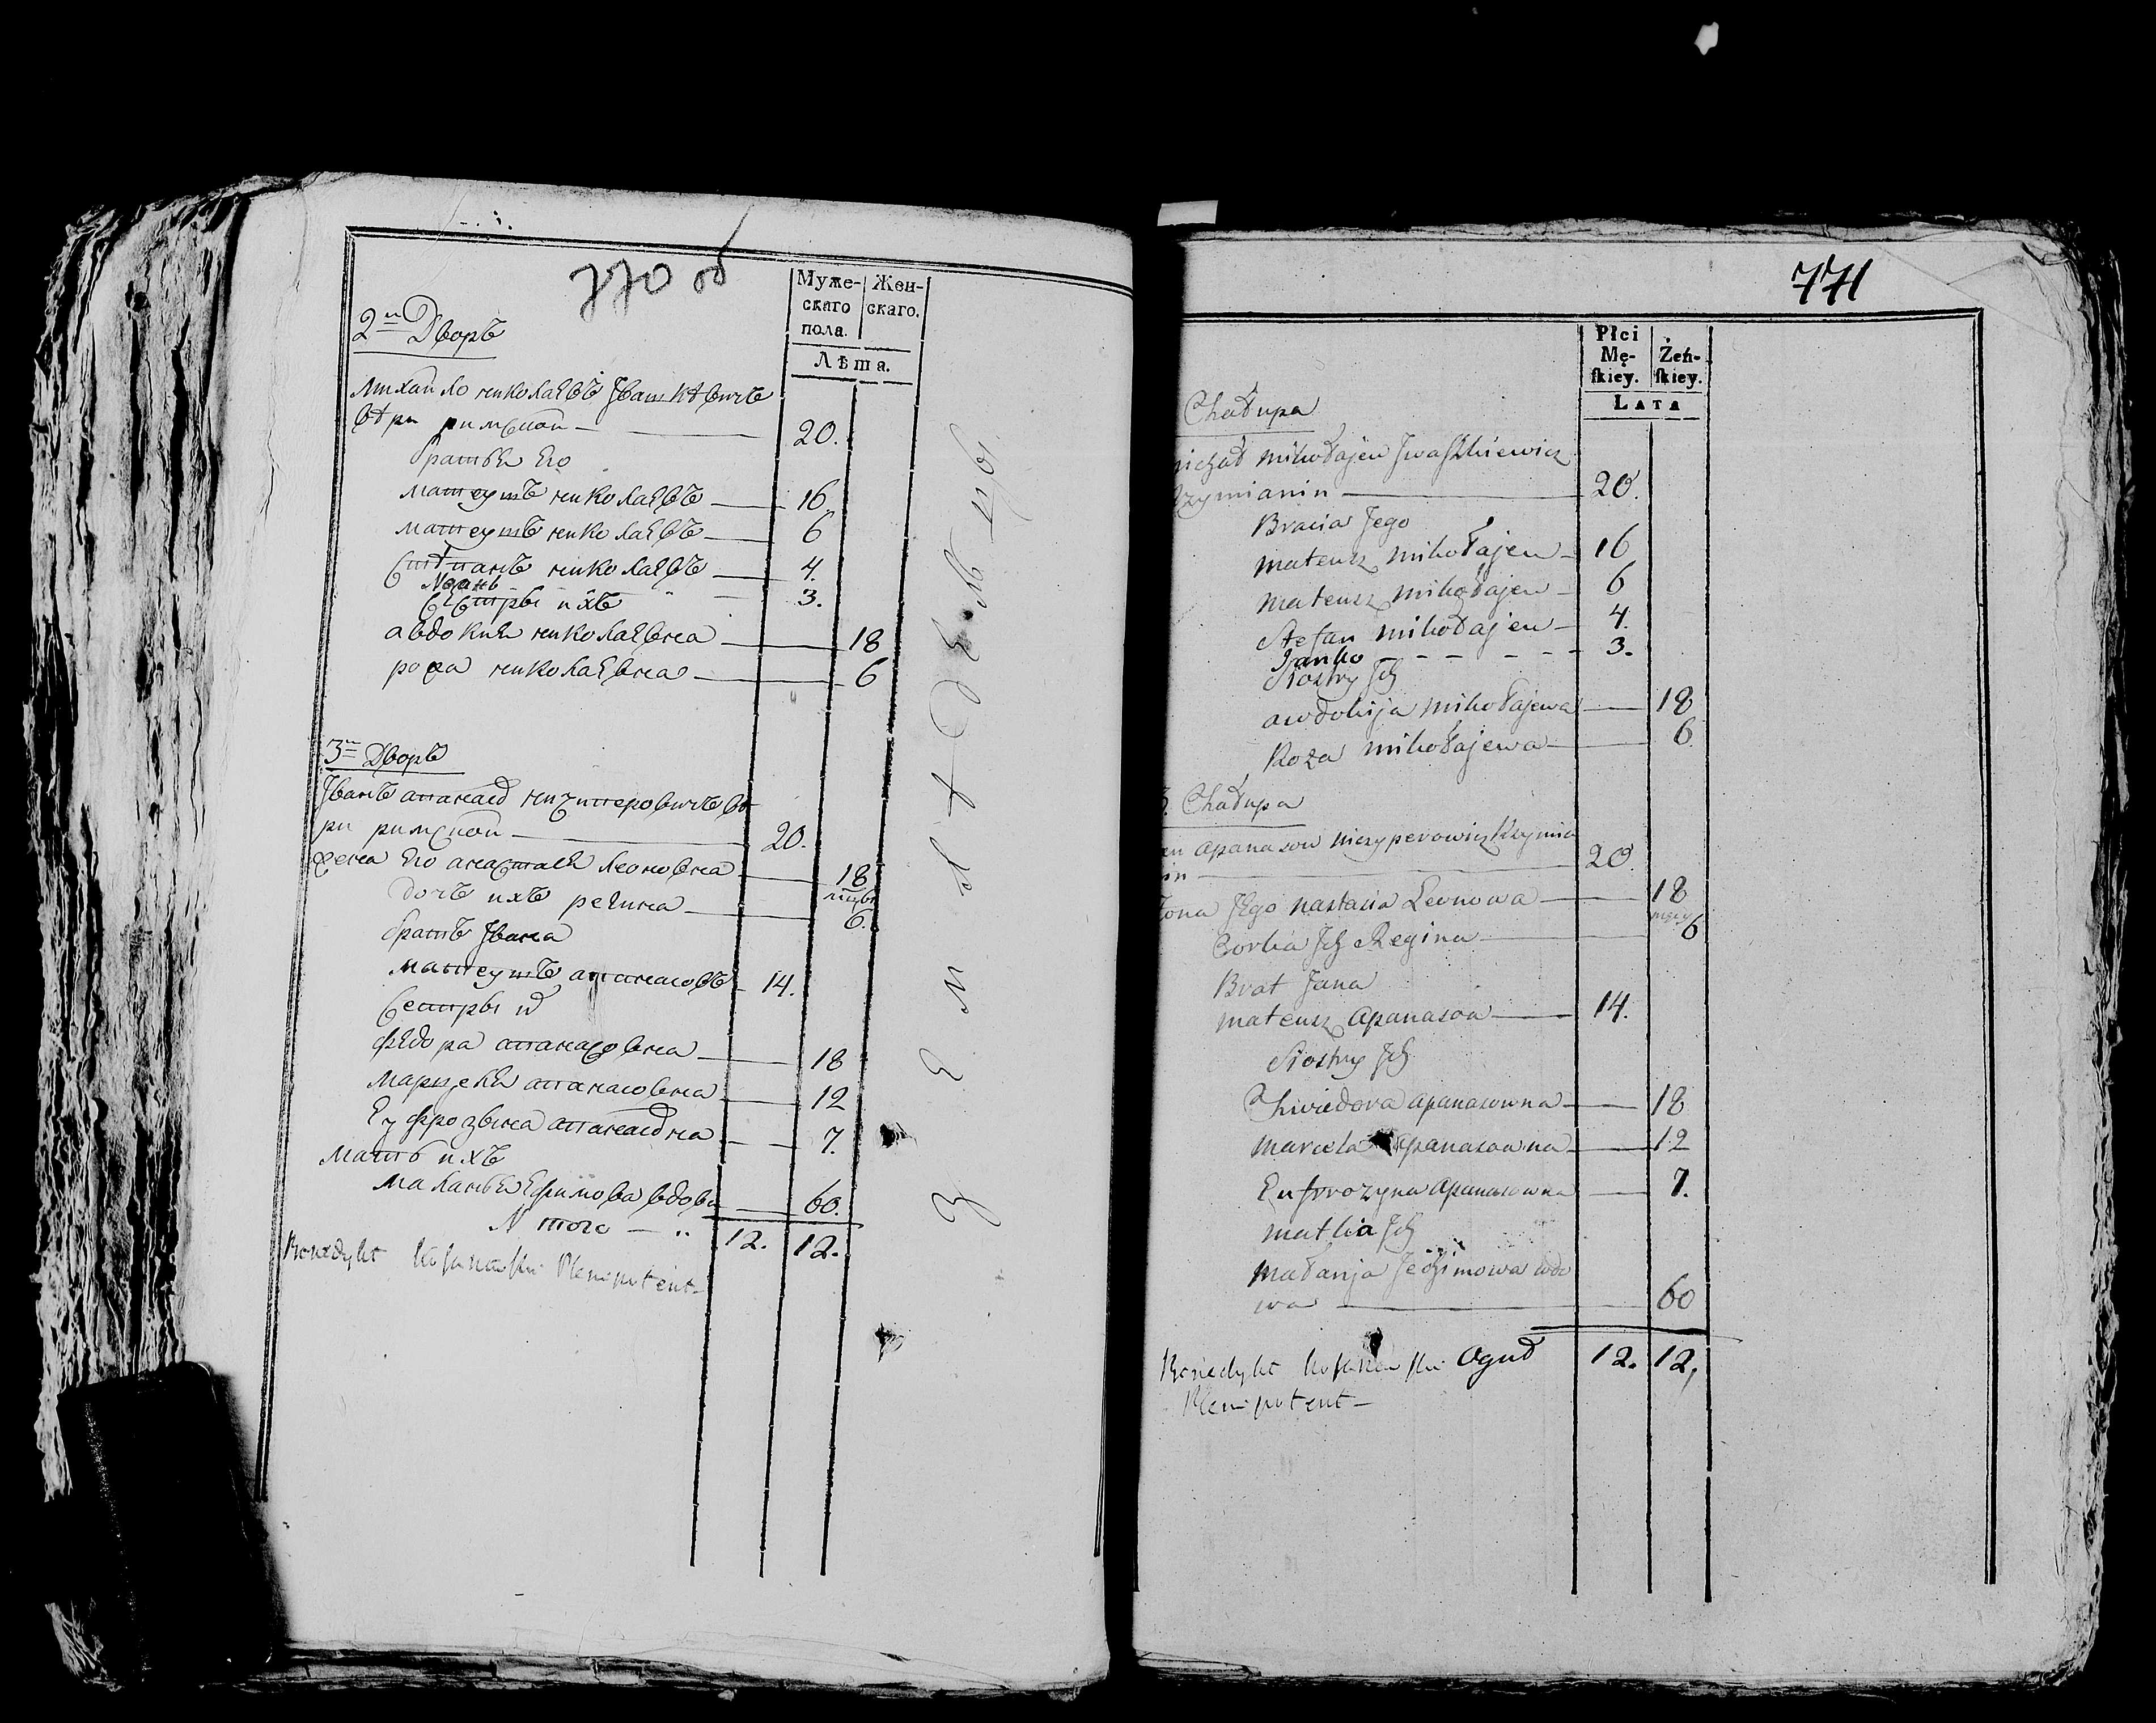 770 об
Муже-
скаго
пола.
Жен-
скаго.
Лѣта.
2й Дворъ
михайло николаевъ Ивашкевичъ
вѣры римской — 20.
братья Его
матеушъ николаевъ — 16
матеушъ николаевъ — 6
Стѣпанъ николаевъ — 4.
Иванъ — 3.
Сестры ихъ
авдокия николаевна — 18
рожа николаевна — 6
3й Дворъ
Иванъ апанасов ничипоровичъ вѣ
ры римской — 20.
жена Его анастасия леоновна — 18
дочь ихъ регина — 6.
братъ Ивана
матеушъ апанасовъ — 14.
Сестры их
федора апанасовна — 18
марцеля апанасовна — 12
Еуфрозына апанасовна — 7.
мать ихъ
маланья Ефимова вдова — 60.
Итого — 12. 12.
Benedykt Plenipotent —
771
Płci
Mę-
ſkiey.
Żeń-
ſkiey.
LATA
Chałupa
michał mikołajew Jwaszkiewicz
Rzymianin — 20.
Bracia Jego
mateusz mikołajew — 16
mateusz mikołajew — 6
Stefan mikołajew — 4.
Janko — 3.
Siostry Jch
awdokija mikołajewa — 18
Roża mikołajewa — 6
3. Chałupa
an apanasow niczyperowicz Rzymia
in — 20.
żona Jego nastazia Leonowa — 18
Corka Jch Regina — 6
Brat Jana
mateusz apanasow — 14.
Siostry Jch
Chwiedora apanasowna — 18
marcela apanasowna — 12
Eufrozyna apanasowna — 7.
matka Jch
małanja Jechimowa wdo
wa — 60
Benedykt Oguł 12. 12,
Plenipotent —